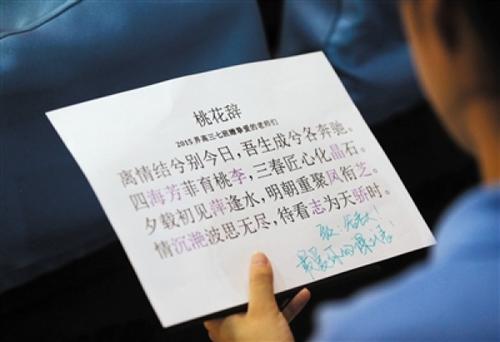 桃花辞
2015界高三七班赠挚爱的老师们
离情结兮别今日，吾生成兮各奔驰。
四海芳菲育桃李，三春匠心化晶石。
夕载初见萍逢水，明朝重聚凤衔芝。
情沉滟波思无尽，待看志为天骄时。
最最好的